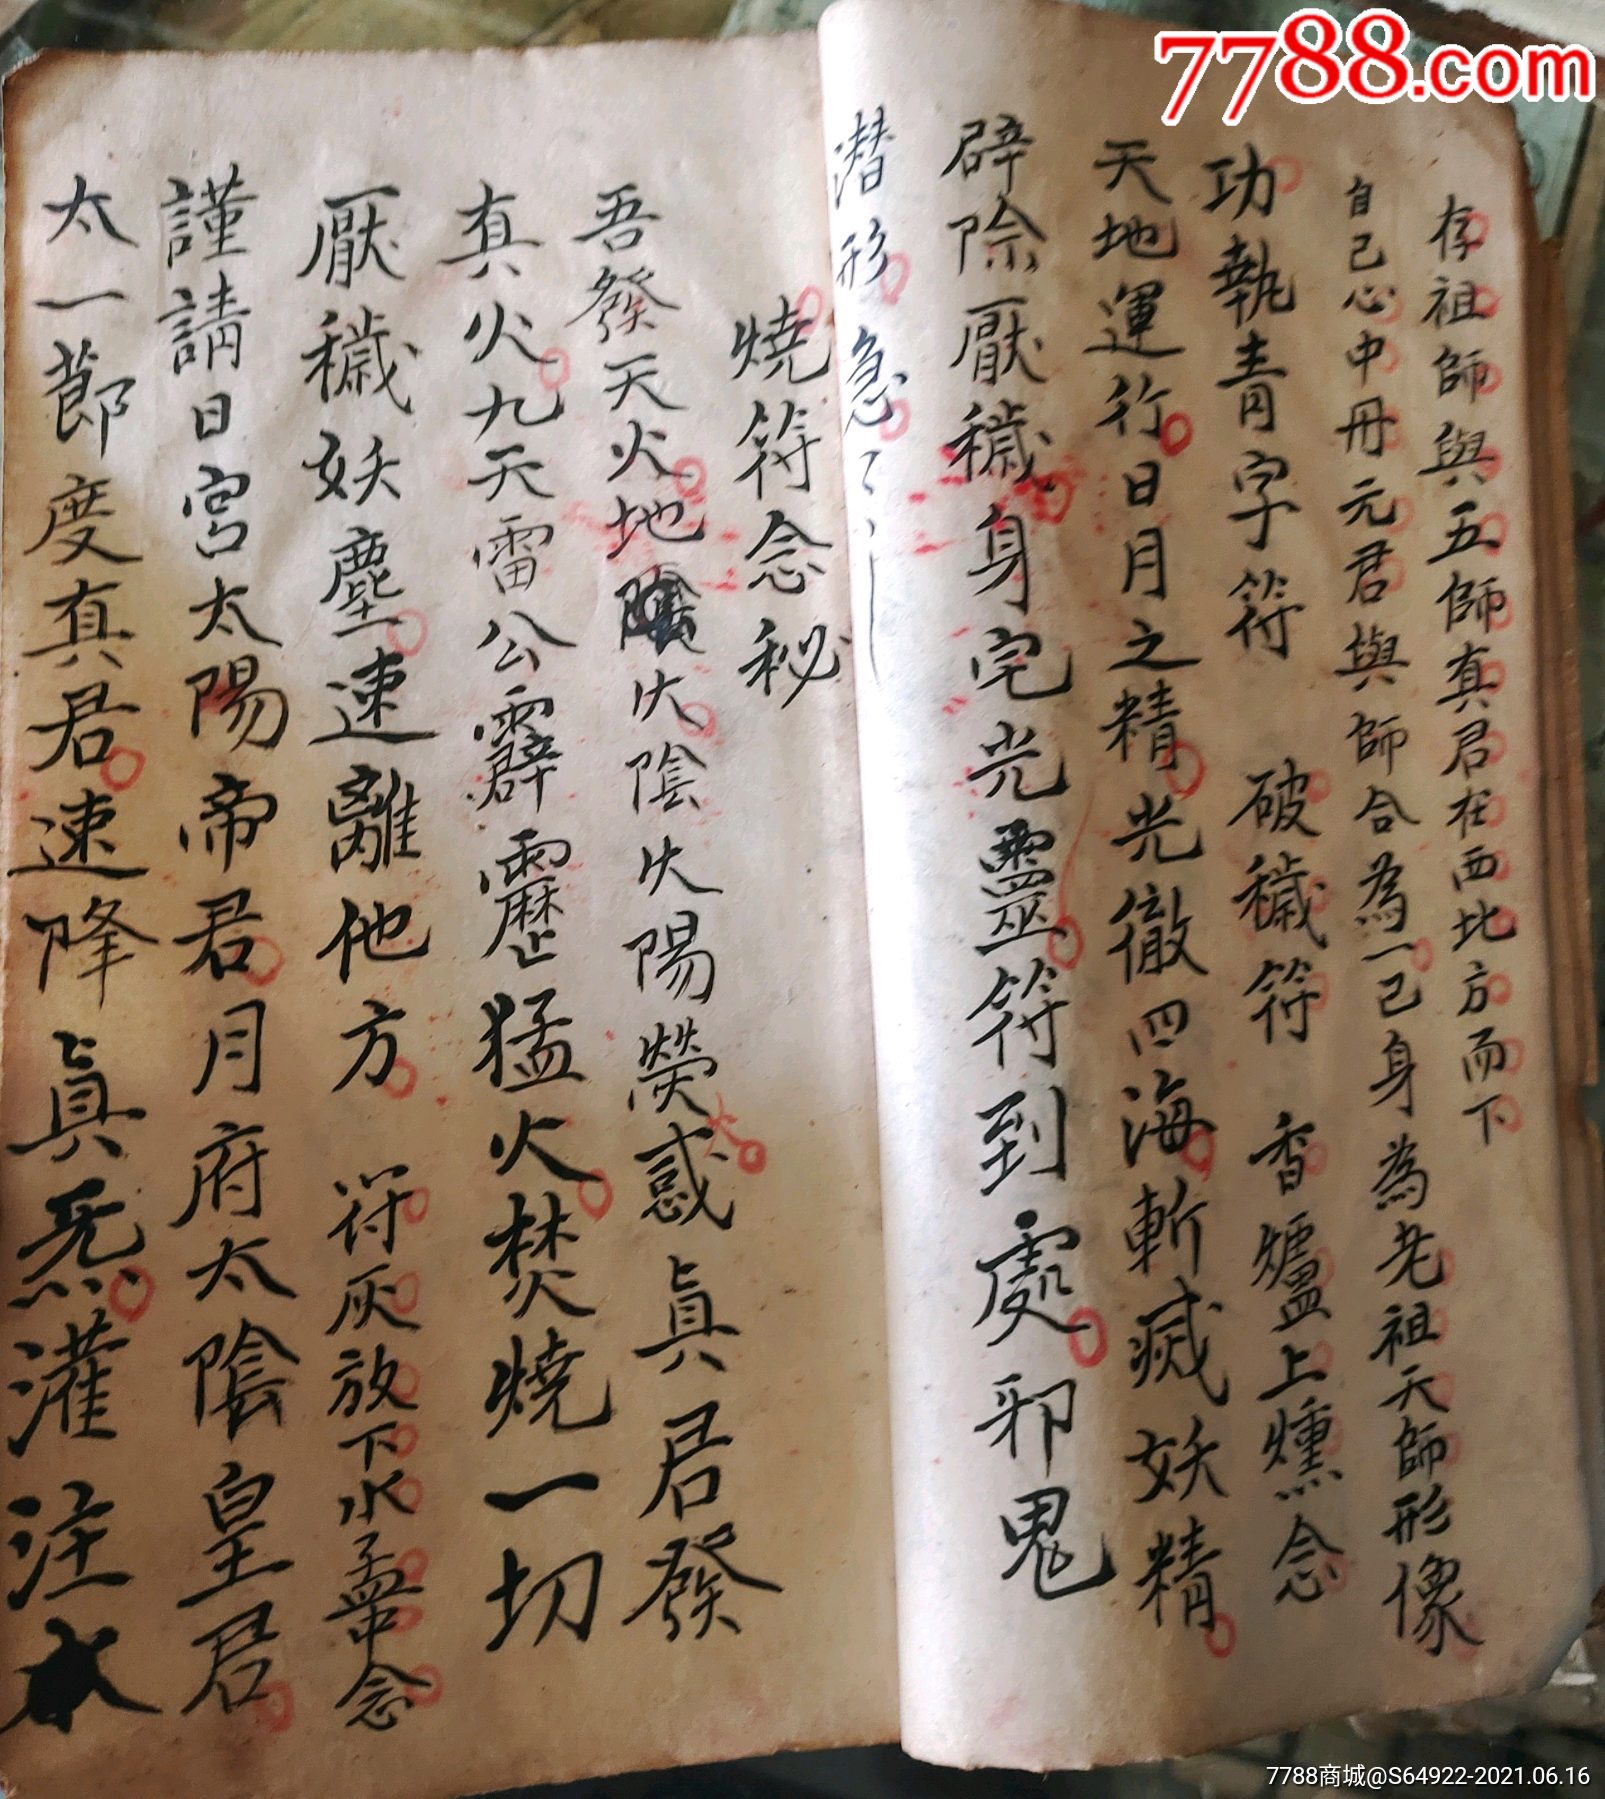 7788.com
存祖師與五師真君在西北方而下
自己心中丹元君與師合為一己身為老祖天師形像
功執青字符 破穢符 香爐上燻念
天地運行日月之精光徹四海斬滅妖精
辟除厭穢身宅光靈符到處邪鬼
潜形急
燒符念秘
吾發天火地火陰火陽熒惑眞君發
真火九天雷公霹靂猛火焚燒一切
厭穢妖塵速離他方 符灰放下水盂中念
謹請日宮太陽帝君月府太陰皇君
太一節度真君速降眞炁灌注水
7788商城@S64922-2021.06.16